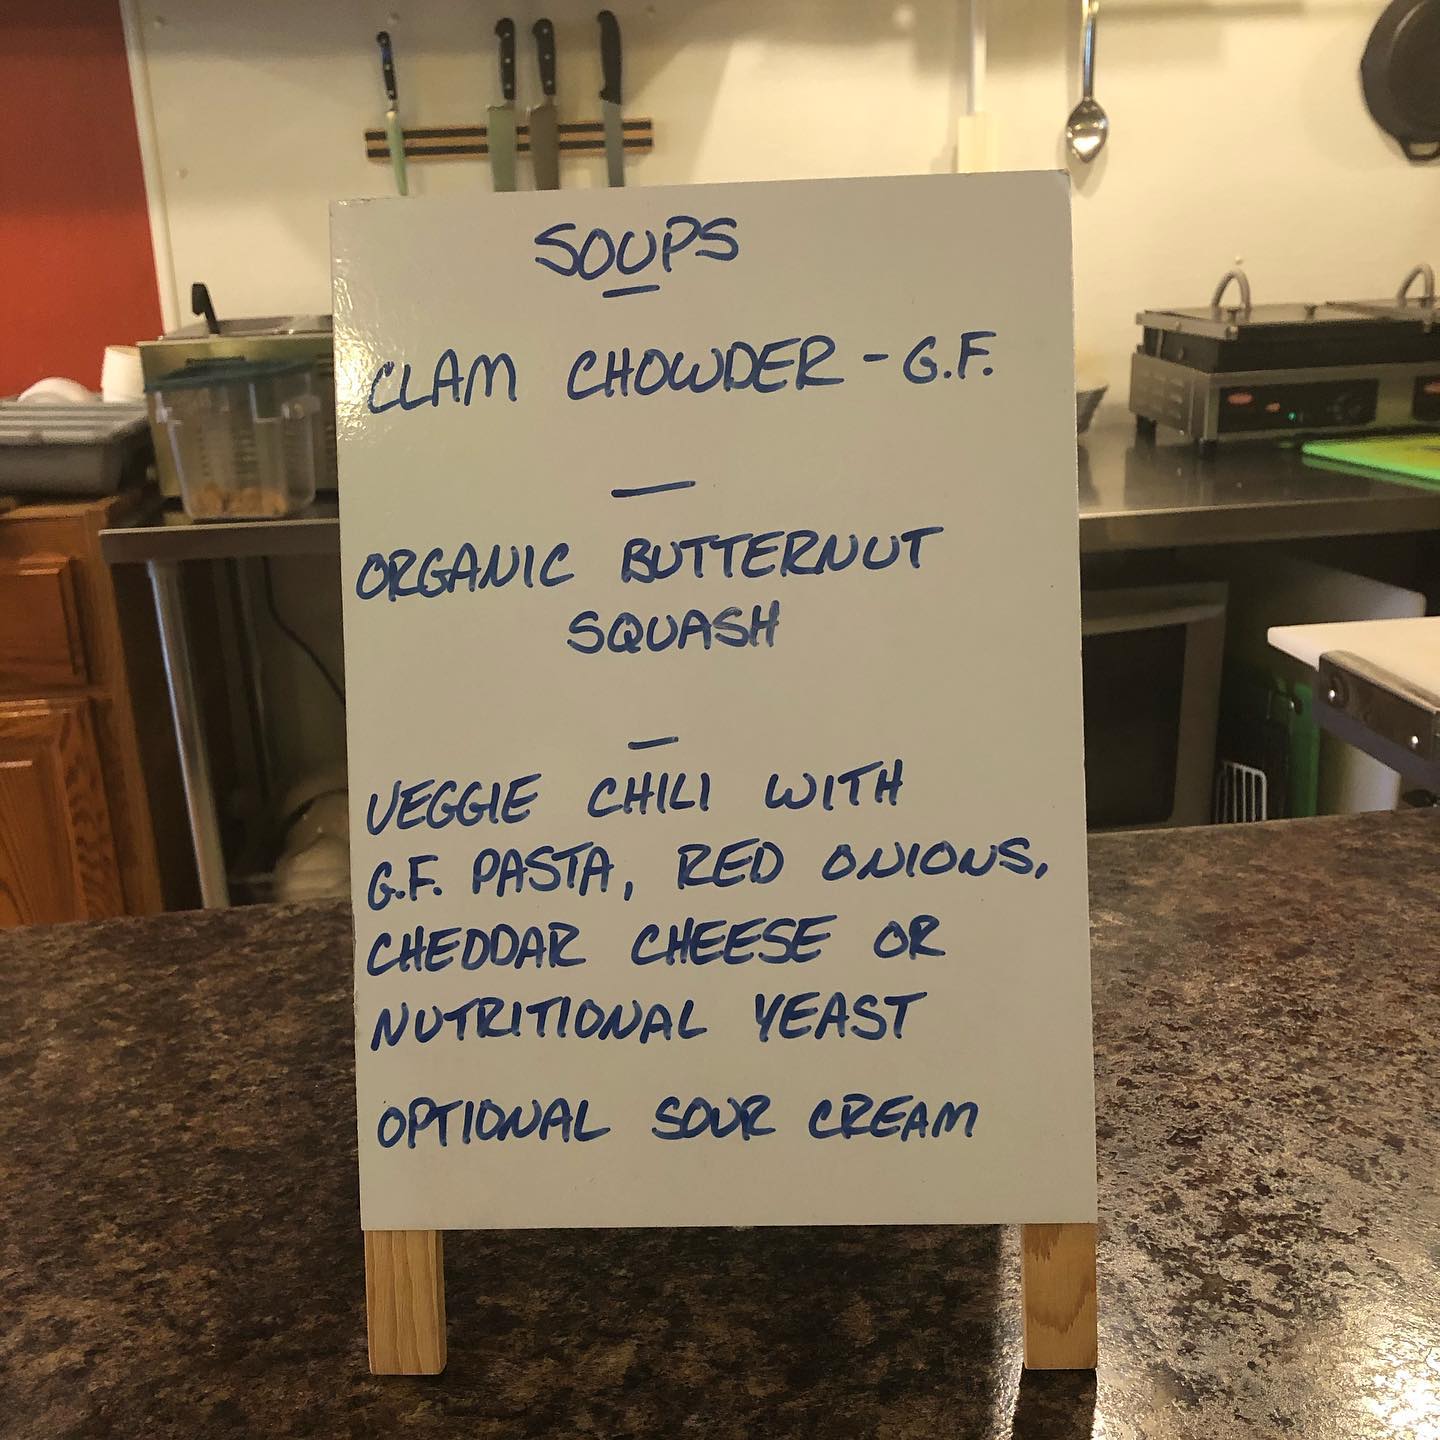 SOUPS
CLAM CHOWDER - G.F.
ORGANIC BUTTERNUT
SQUASH
VEGGIE CHILI WITH
G.F. PASTA, RED ONIONS,
CHEDDAR CHEESE OR
NUTRITIONAL YEAST
OPTIONAL SOUR CREAM